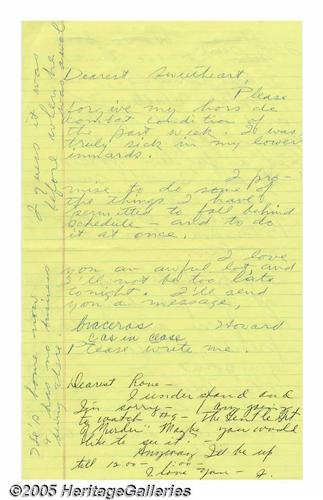 Dearest Sweetheart,
Please
forgive my hors de
combat condition of
the past week. I was
truly sick in my lower
innards.
I pro-
mise to do some of
the things I have
permitted to fall behind
schedule – and to do
it at once.
I love
you an awful lot, and
I'll not be too late
tonight. I'll send
you a message,
Howard
Please write me.
Dearest
I understand and
I'm sorry – I am going
to watch "The Gentle Art
of Murder" Maybe you would
like to see it –
Anyway I'll be up
till 12:00 – 1:00 –
I love you – J.
I guess it was
before when he
He is home now
& has no business
©2005 HeritageGalleries